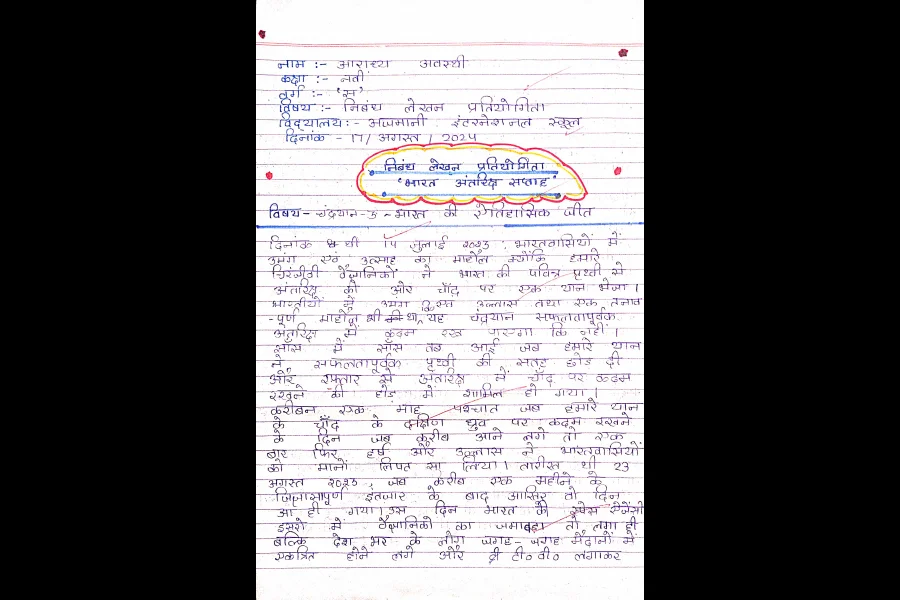 नाम :- आराध्य अवस्थी
कक्षा :- नवीं
वर्ग :- 'स'
विषय :- निबंध लेखन प्रतियोगिता
विद्यालय :- अजमानी इंटरनेशनल स्कूल
दिनांक - 17/ अगस्त / २०२५
निबंध लेखन प्रतियोगिता
'भारत अंतरिक्ष सप्ताह'
विषय - चंद्रयान-3 ~ भारत की ऐतिहासिक जीत
दिनांक थी 14 जुलाई २०२३, भारतवासियों में
उमंग एवं उत्साह का माहौल क्योंकि हमारे
चिरंजीवी वैज्ञानिकों ने भारत की पवित्र पृथ्वी से
अंतरिक्ष की ओर चाँद पर एक यान भेजा।
भारतीयों में उमंग उल्लास तथा एक तनाव
-पूर्ण माहौल यह चंद्रयान सफलतापूर्वक
अंतरिक्ष में कदम रख पाएगा कि नहीं।
साँस में साँस तब आई जब हमारे यान
ने सफलतापूर्वक पृथ्वी की सतह छोड़ दी
और रफ़्तार से अंतरिक्ष में चाँद पर कदम
रखने की होड़ में शामिल हो गया।
करीबन एक माह पश्चात जब हमारे यान
के चाँद के दक्षिण ध्रुव पर कदम रखने
के दिन जब करीब आने लगे तो एक
बार फिर हर्ष और उल्लास ने भारतवासियों
को मानों लिपट सा लिया। तारीख थी 23
अगस्त २०२३, जब करीब एक महीने के
जिज्ञासापूर्ण इंतजार के बाद आखिर वो दिन
आ ही गया। इस दिन भारत के स्पेस एजेंसी
इसरो में वैज्ञानिकों का जमावड़ा तो लगा ही
बल्कि देश भर के लोग जगह-जगह मैदानों में
एकत्रित होने लगे और टी०वी० लगाकर